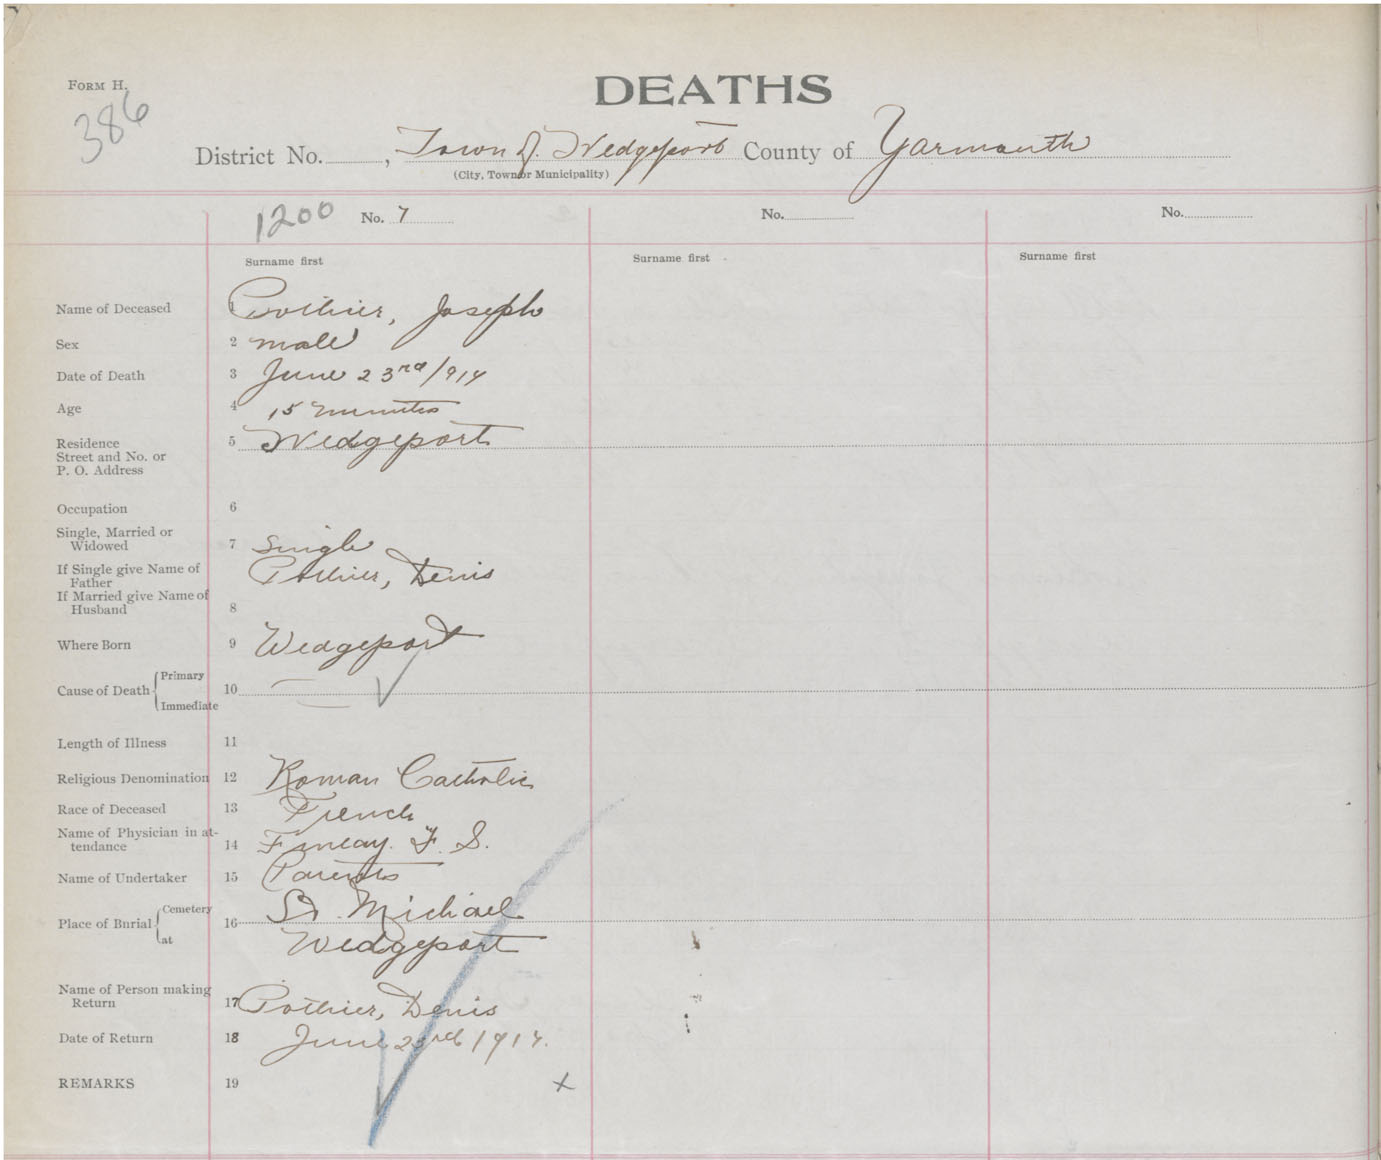 FORM H.
386
DEATHS
District No. , Town of Wedgeport County of Yarmouth
(City, Town or Municipality)
1200 No. 7 No. No.
Surname first Surname first Surname first
Name of Deceased 1 Pothier, Joseph
Sex 2 male
Date of Death 3 June 23rd/914
Age 4 15 minutes
Residence 5 Wedgeport
Street and No. or
P. O. Address
Occupation 6
Single, Married or
Widowed 7 Single
If Single give Name of Pothier, Denis
Father
If Married give Name of
Husband 8
Where Born 9 Wedgeport
Cause of Death Primary 10
Immediate
Length of Illness 11
Religious Denomination 12 Roman Catholic
Race of Deceased 13 French
Name of Physician in at-
tendance 14 Finlay. F. S.
Name of Undertaker 15 Parents
Place of Burial Cemetery 16 St. Michael
at Wedgeport
Name of Person making
Return 17 Pothier, Denis
Date of Return 18 June 23rd 1914.
REMARKS 19 x